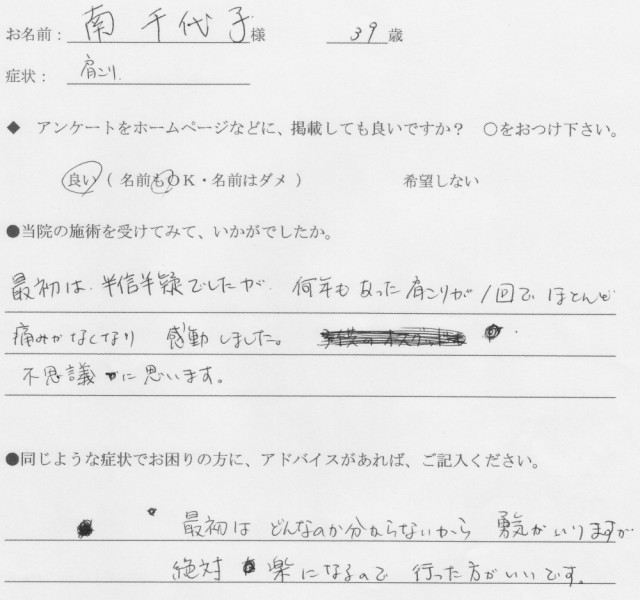 お名前： 南 千代子 様 39 歳
症状： 肩こり
◆ アンケートをホームページなどに、掲載しても良いですか？ ○をおつけ下さい。
良い（ 名前もOK・名前はダメ ） 希望しない
●当院の施術を受けてみて、いかがでしたか。
最初は、半信半疑でしたが、何年もあった肩こりが1回でほとんど
痛みがなくなり 感動しました。
不思議に思います。
●同じような症状でお困りの方に、アドバイスがあれば、ご記入ください。
最初は どんなのか分からないから 勇気がいりますが
絶対 楽になるので 行った方がいいです。